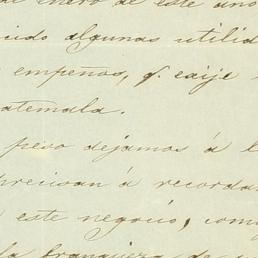 de enero de este año
cido algunas utilid
empeños, q. exije
atemala.
peso dejamos á l
precisan á recorda
este negocio, com
la franqueza de